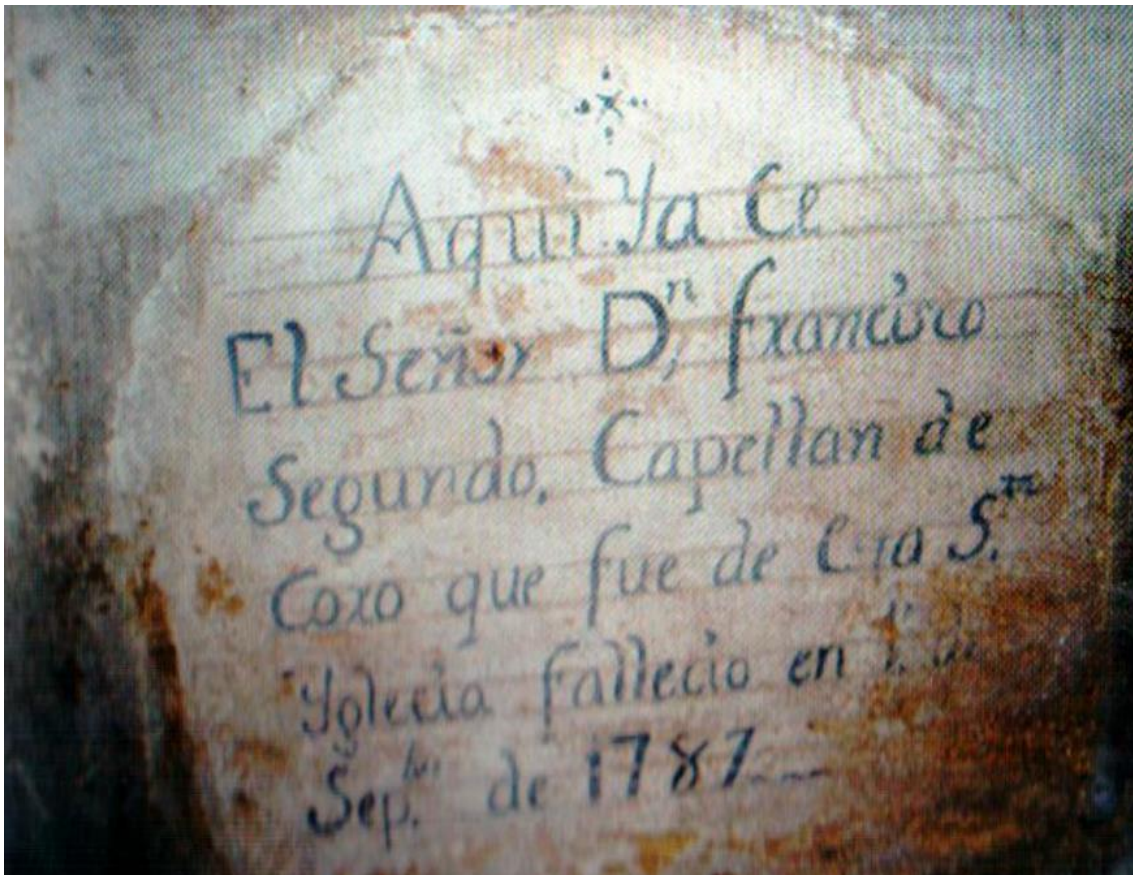 Aqui Ya Ce
El Señor Dn, francisco
Segundo, Capellan de
Coro que fue de S.
Yglecia fallecio en
Sep. de 1787